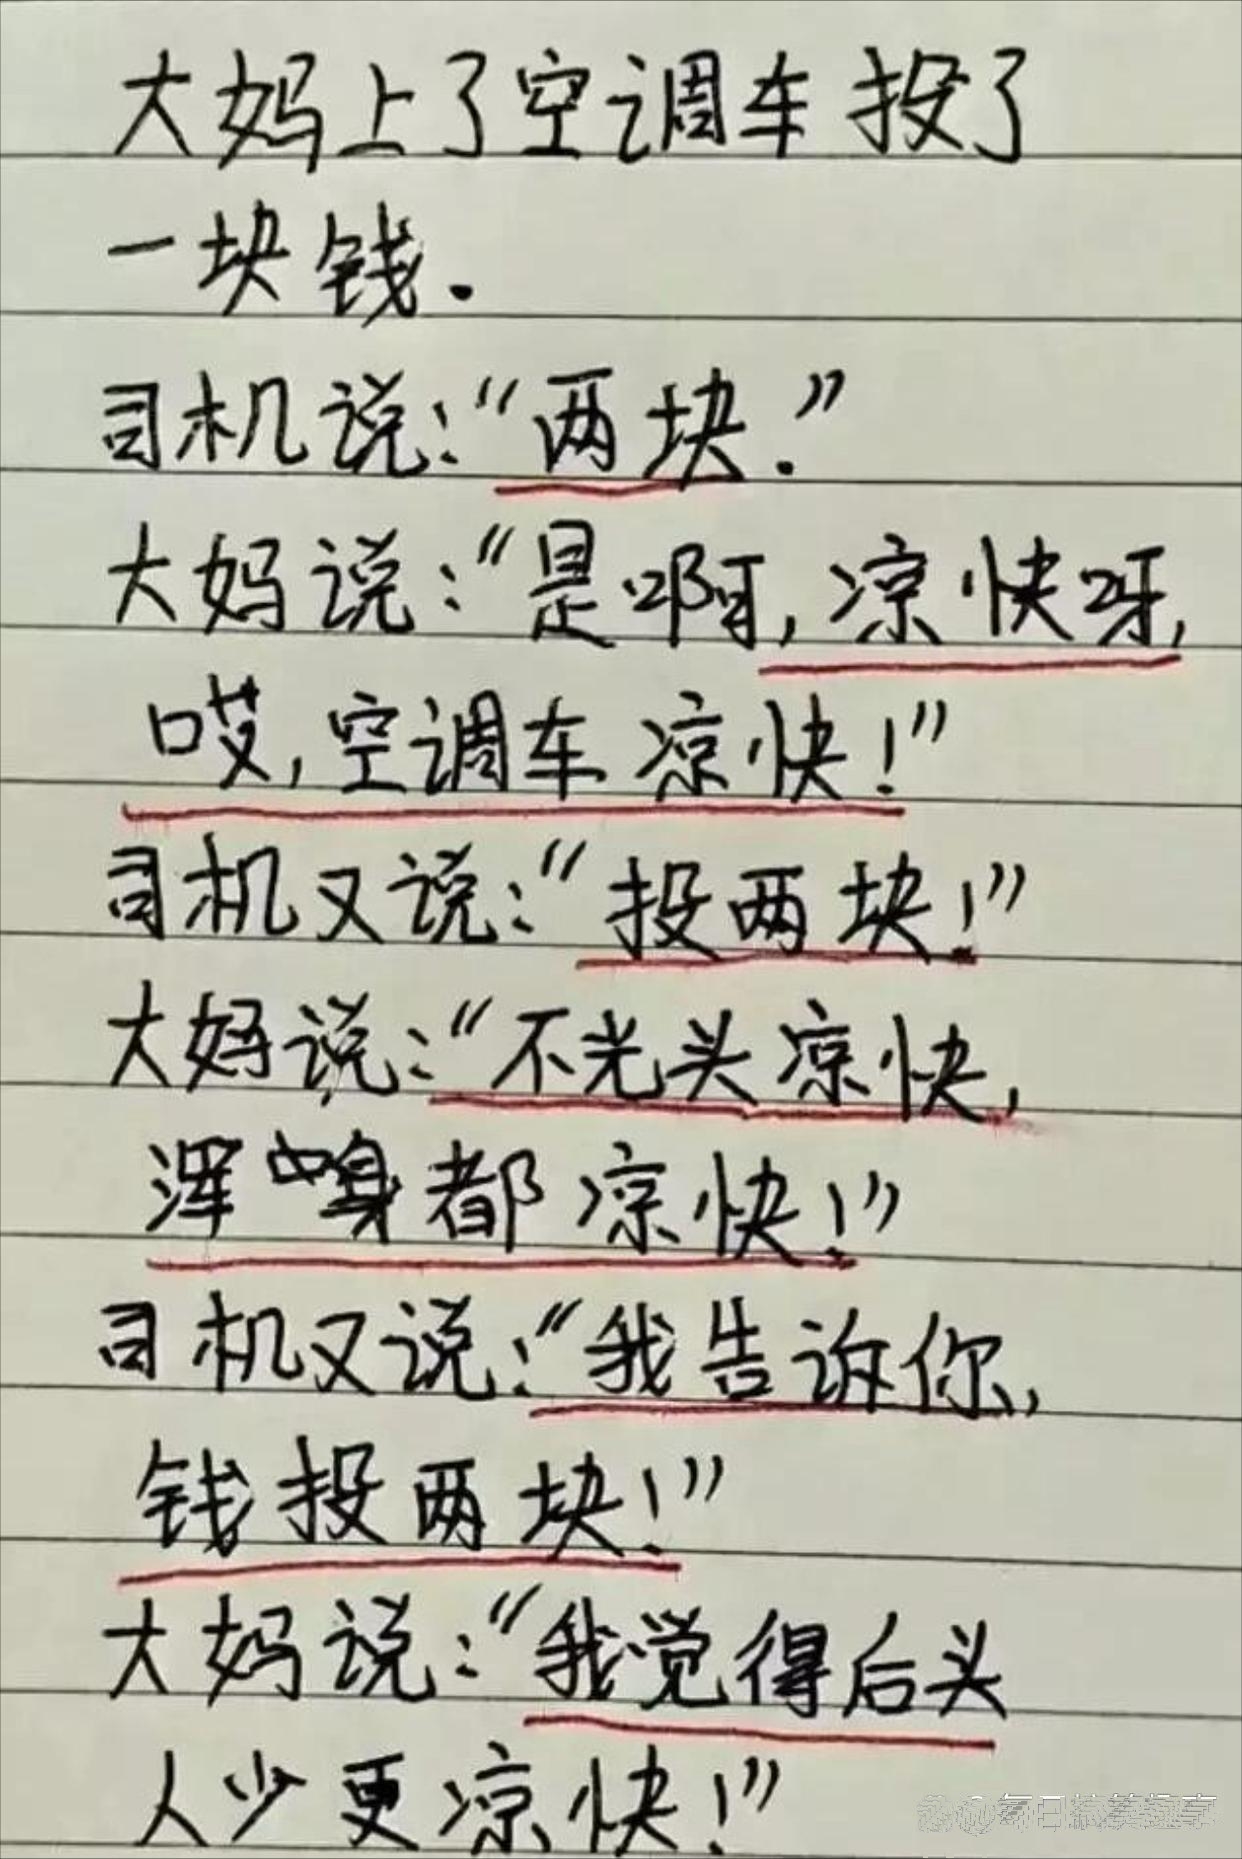 大妈上了空调车投了
一块钱.
司机说:“两块.”
大妈说:“是啊,凉快呀,
哎,空调车凉快!”
司机又说:“投两块!”
大妈说:“不光头凉快,
浑身都凉快!”
司机又说:“我告诉你,
钱投两块!”
大妈说:“我觉得后头
人少更凉快!”
每日搞笑分享